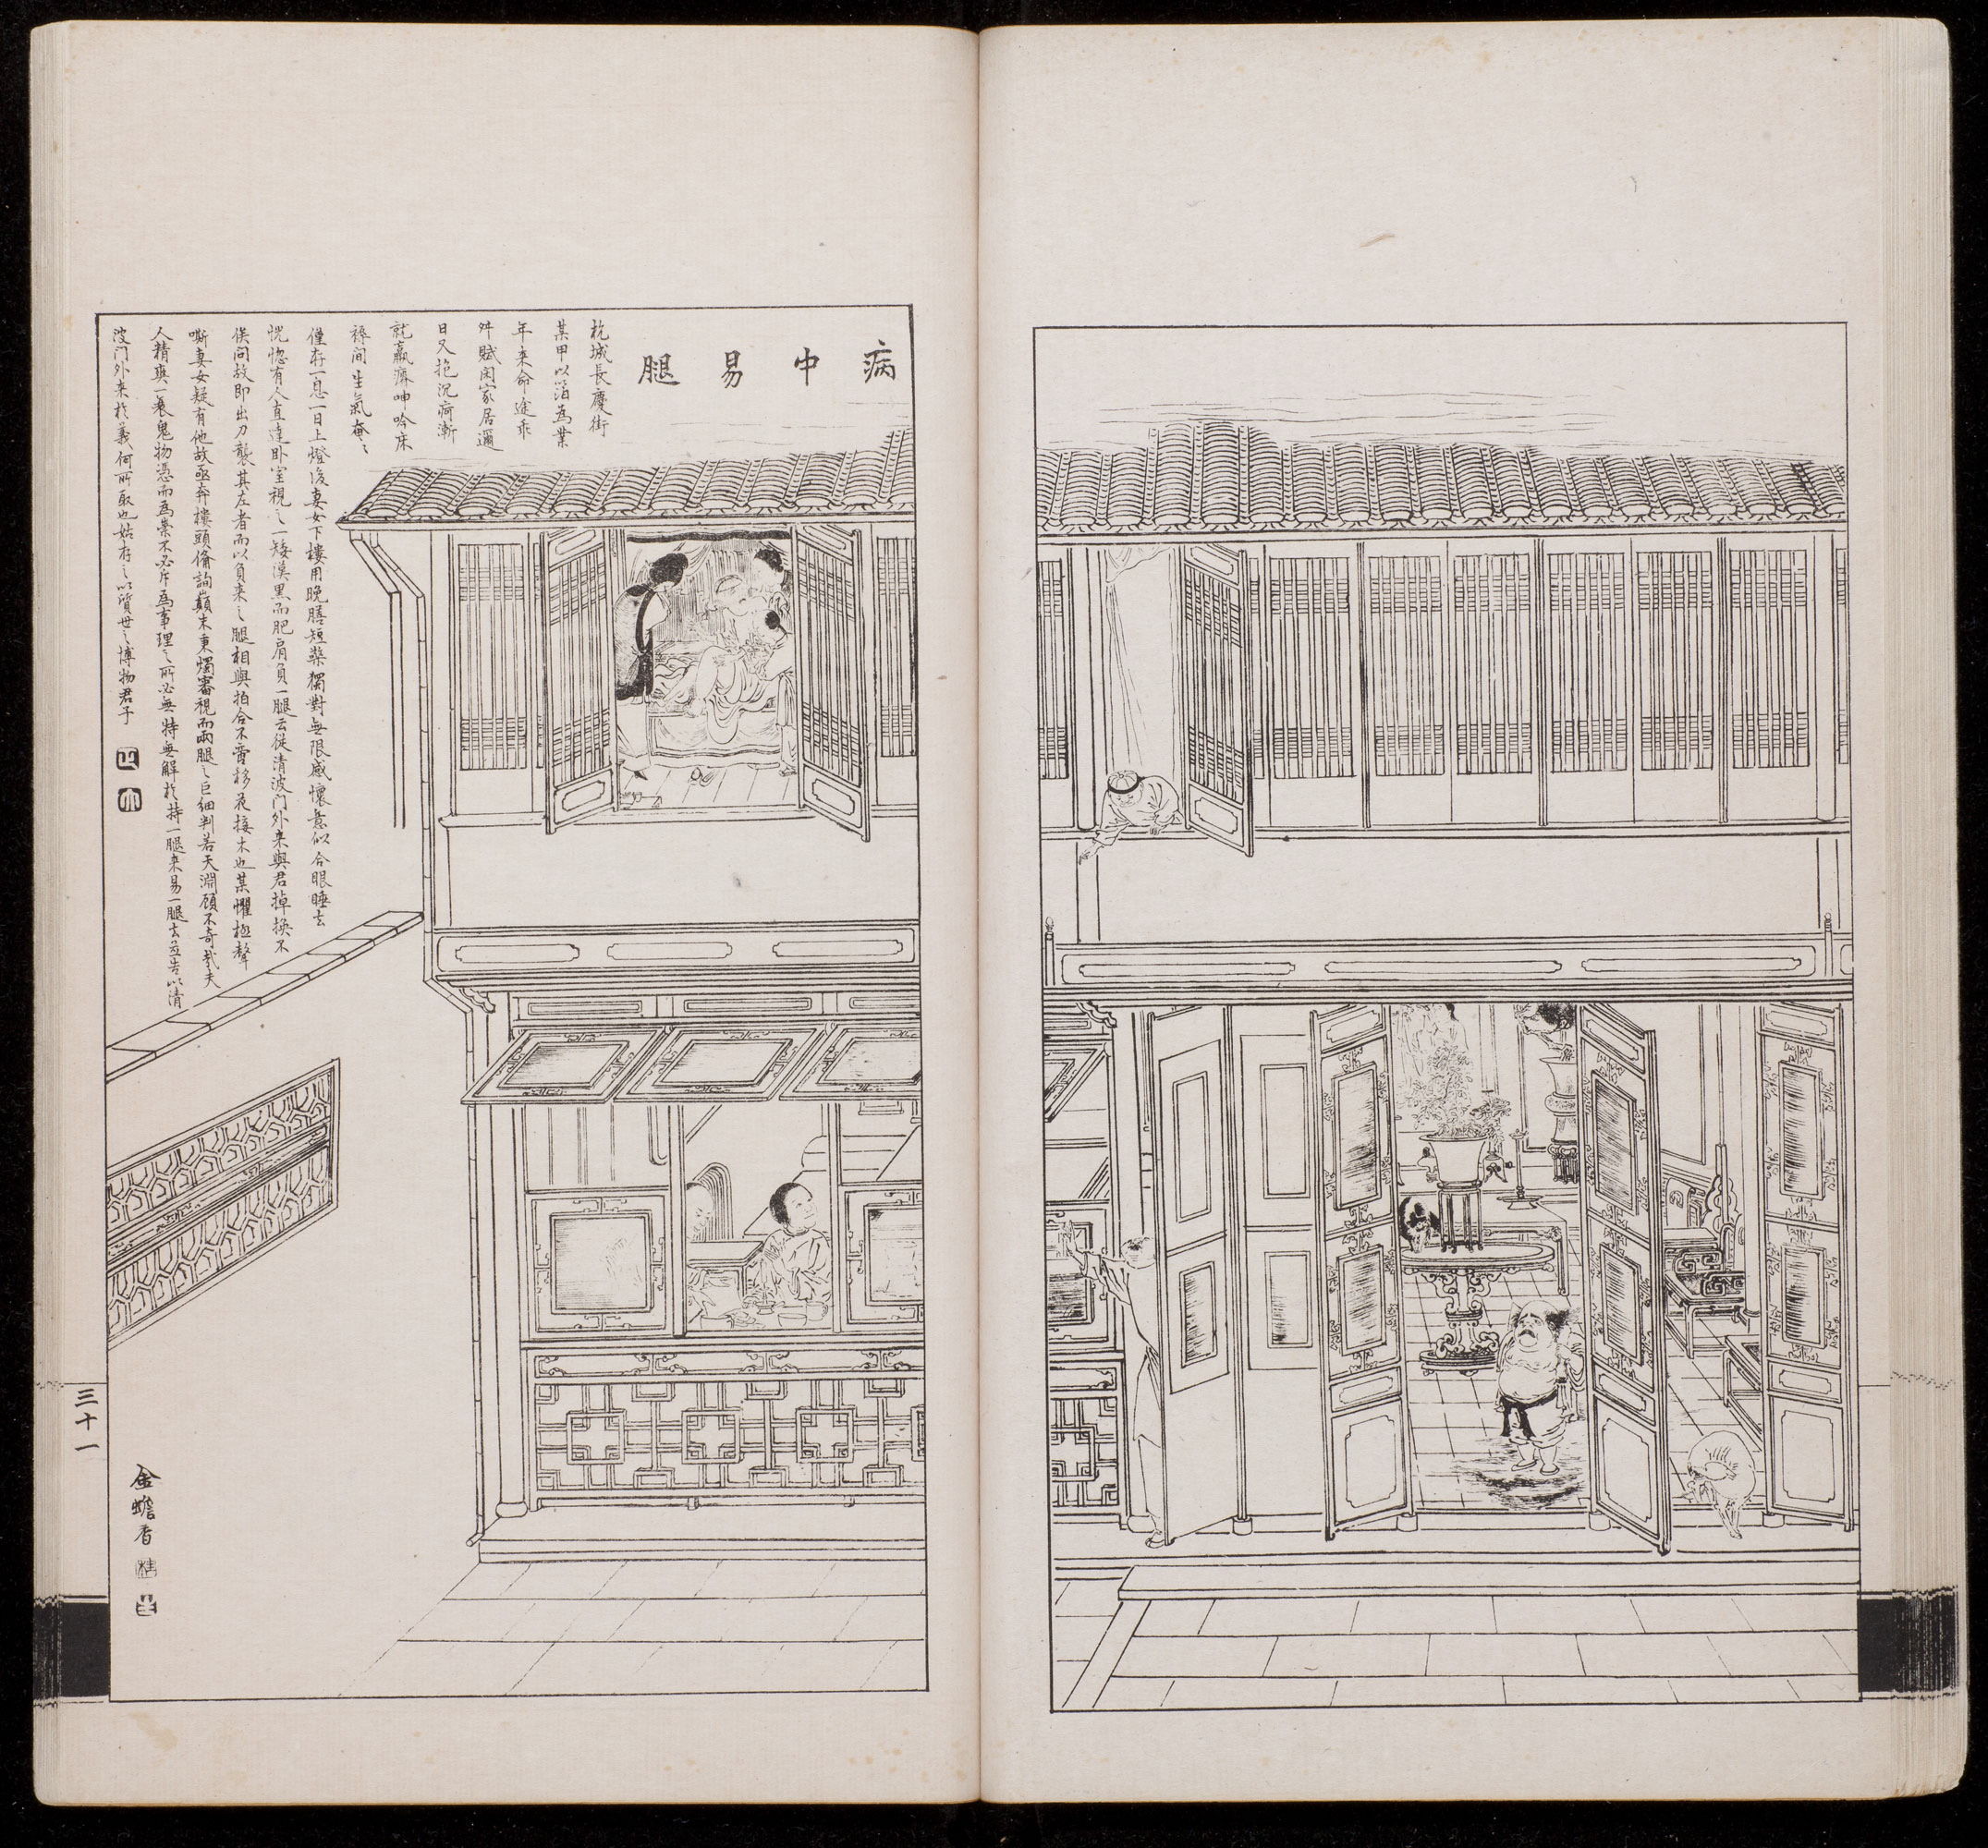 病中易腿
杭城長慶街
某甲以箔為業
年來命途乖
舛賦閑家居邇
日又抱沉疴漸
就羸瘠呻吟床
褥間生氣奄〻
僅存一息一日上燈後妻女下樓用晚膳短檠獨對無限感懷意似合眼睡去
恍惚有人直達卧室視之一矮漢黑而肥肩負一腿云從清波門外來與君掉換不
俟問故即出刀襲其左者而以負來之腿相與拍合不啻移花接木也某懼極聲
嘶妻女疑有他故亟奔樓頭備詢顛末秉燭審視而兩腿之巨細判若天淵顧不奇哉夫
人精與一衰鬼物憑而為祟不必斥為事理之所必無特無解於持一腿來易一腿去並告以清
波门外來於義何所取也姑存之以質世之博物君子
三十一
金蟾香